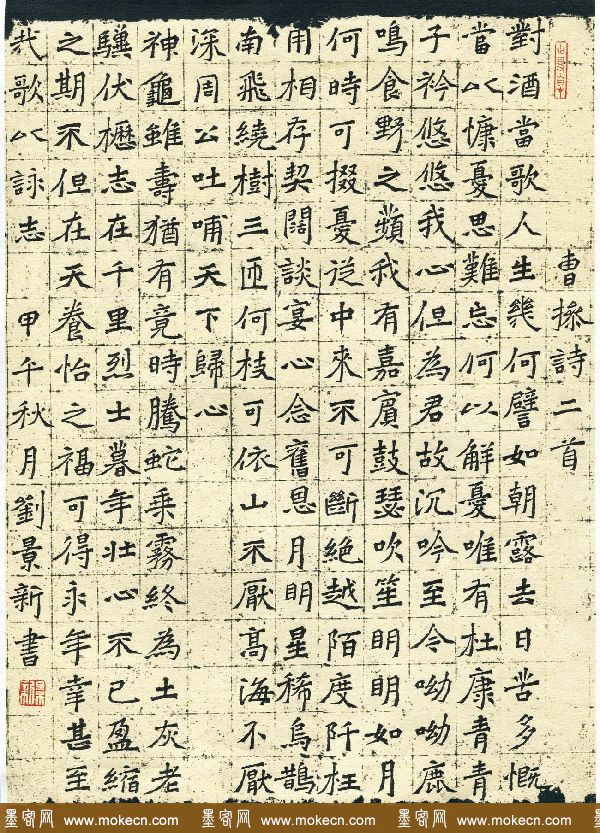 曹操詩二首
對酒當歌人生幾何譬如朝露去日苦多慨
當以慷憂思難忘何以解憂唯有杜康青青
子衿悠悠我心但為君故沉吟至今呦呦鹿
鳴食野之蘋我有嘉賓鼓瑟吹笙明明如月
何時可掇憂從中來不可斷絕越陌度阡枉
用相存契闊談宴心念舊恩月明星稀烏鵲
南飛繞樹三匝何枝可依山不厭高海不厭
深周公吐哺天下歸心
神龜雖壽猶有竟時騰蛇乘霧終為土灰老
驥伏櫪志在千里烈士暮年壯心不已盈縮
之期不但在天養怡之福可得永年幸甚至
哉歌以詠志 甲午秋月劉景新書
墨客网 www.mokecn.com 墨客网 www.mokecn.com 墨客网 www.mokecn.com